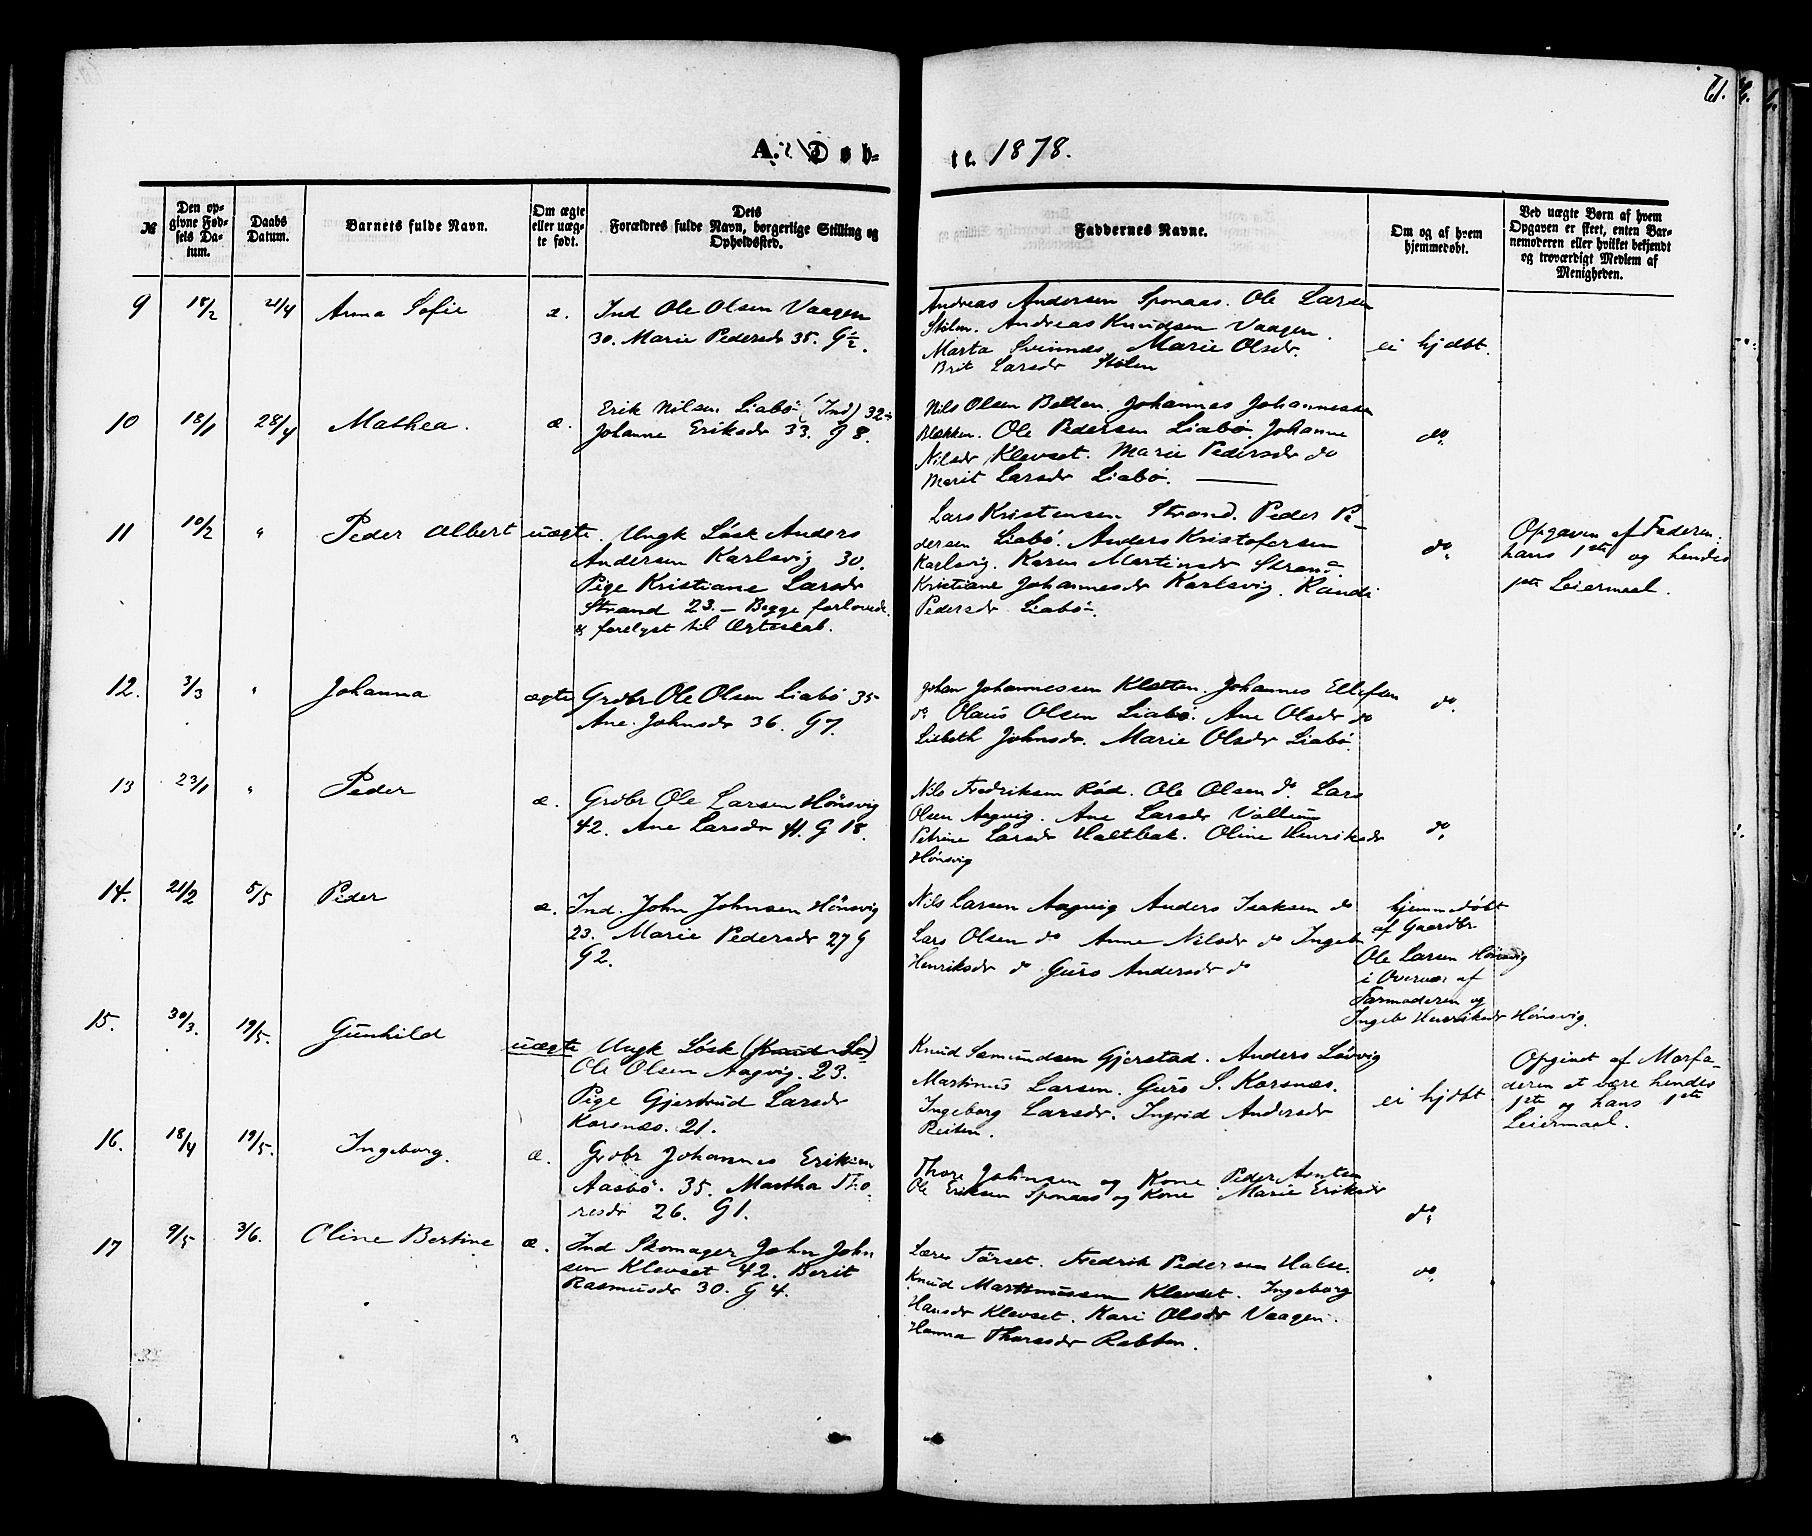 61.
A. Døb-
te. 1878.
№
Den op-
givne Fød-
sels Da-
tum.
Daabs
Datum.
Barnets fulde Navn.
Om ægte
eller uæg-
te født.
Dets
Forældres fulde Navn, borgerlige Stilling og
Opholdssted.
Faddernes Navne.
Om og af hvem
hjemmedøbt.
Ved uægte Børn af hvem
Opgaven er skeet, enten Bar-
nemoderen eller hvilket bekjendt
og troværdigt Medlem af
Menigheden.
9 18/2 21/4 Anna Sofie æ. Ind Ole Olsen Vaagen
30. Marie Pedersdr 35. G ½.
Andreas Andersen Sponaas. Ole Larsen
Stolen. Andreas Knudsen Vaagen.
Marta Svinnes. Marie Olsdr.
Brit Larsdr Stolen
ei hjdøbt.
10 18/1 28/4 Mathea. æ. Erik Nilsen Liabö (Ind) 32
Johanne Eriksdr 33. G 8.
Nils Olsen Betten. Johannes Johannessen
Blekken. Ole Pedersen Liabö. Johanne
Nilsdr Klevset. Marie Pedersdr do
Marit Larsdr Liabö.
do.
11 10/2 " Peder Albert uægte. Ungk Løsk Anders
Andersen Karlsvig 30.
Pige Kristiane Larsdr
Strand 23. – Begge forlovede
& forelyst til Ægteskab.
Lars Kristensen Strand. Peder Pe-
dersen Liabö. Anders Kristofersen
Karlsvig. Karen Martinsdr Strand.
Kristiane Johannesdr Karlsvig. Randi
Pedersdr Liabö.
do.
Opgaven af Faderen:
hans 1ste og hendes
1ste Leiermaal.
12. 3/3 " Johanna ægte Grdbr Ole Olsen Liabö 35
Ane Johnsdr 36. G7.
Johan Johannessen Kletten. Johannes Ellefsen
do Olaus Olsen Liabö. Ane Olsdr do
Lisbeth Johnsdr. Marie Olsdr Liabö.
do.
13 23/1 " Peder æ. Grdbr Ole Larsen Hönsvig
42. Ane Larsdr 41. G 18.
Nils Fredriksen Röd. Ole Olsen do. Lars
Olsen Aagvig. Ane Larsdr Vullum
Petrine Larsdr Haltbak. Oline Henriksdr
Hönsvig
do.
14. 21/2 5/5 Peder æ. Ind. John Johnsen Hönsvig
23. Marie Pedersdr 27 G
G 2.
Nils Larsen Aagvig Anders Isaksen do
Lars Olsen do Anne Nilsdr do Ingeb.
Henriksdr do Guro Andersdr do
hjemmedøbt
af Gaardbr
Ole Larsen Hönsvig
i Overvær af
Farmoderen og
Ingeb Henriksdr Hönsvig.
15. 30/3. 19/5. Gunhild uægte Ungk Løsk (Knud La)
Ole Olsen Aagvig. 23.
Pige Gjertrud Larsdr
Korsnæs. 21.
Knud Samundsen Gjerstad. Anders Lövvig
Martinus Larsen. Guro S. Korsnæs.
Ingeborg Larsdr. Ingrid Andersdr
Reiten.
ei hjdøbt.
Opgivet af Morfa-
deren at være hendes
1ste og hans 1ste
Leiermaal.
16. 18/4 19/5. Ingeborg. æ. Grdbr Johannes Eriksen
Aasbö. 35. Martha Tho-
resdr 26. G1.
Thore Johnsen og Kone Peder Arntsen
Ole Eriksen Sponaas og Kone Marie Eriksdr
do.
17 9/5 3/6. Oline Bertine æ. Ind Skomager John John
sen Klevset 42. Berit
Rasmusdr 30. G 4.
Lærer Törset. Fredrik Pedersen Halse.
Knud Martinussen Klevset. Ingeborg
Hansdr Klevset. Kari Olsdr Vaagen.
Hanna Thoresdr Rabben.
do.